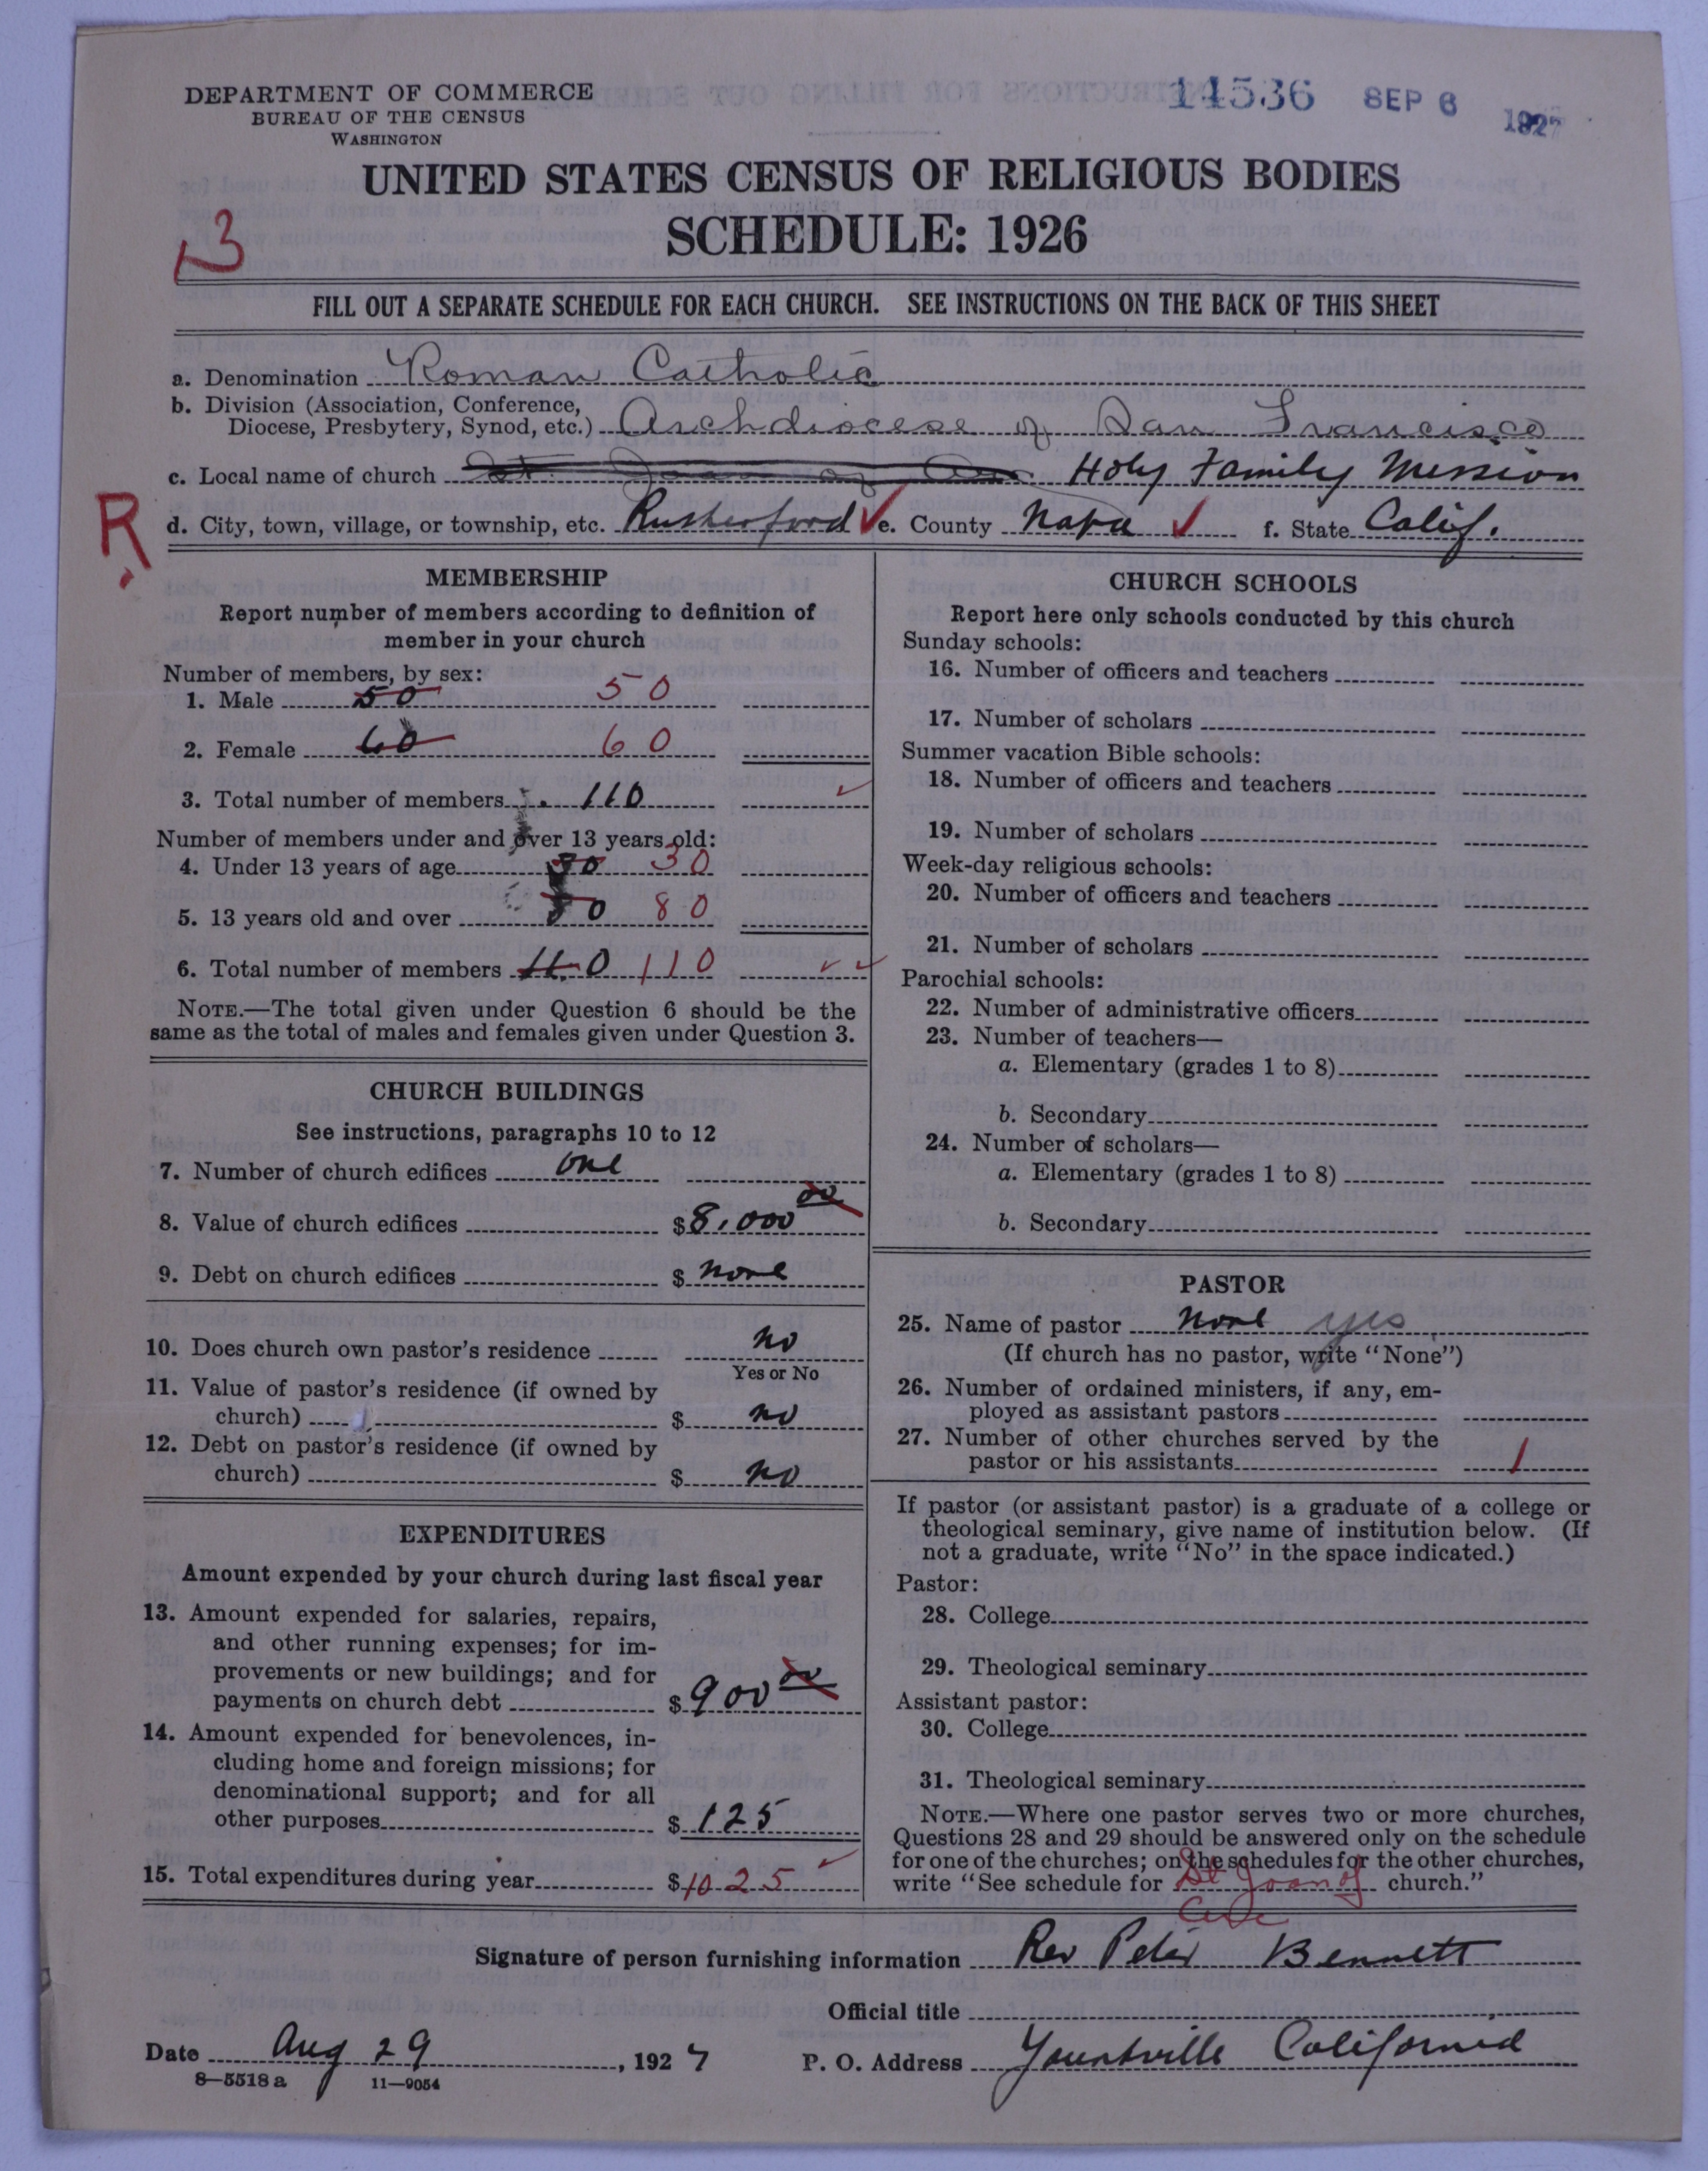 DEPARTMENT OF COMMERCE
BUREAU OF THE CENSUS
WASHINGTON
14536 SEP 6 1927
UNITED STATES CENSUS OF RELIGIOUS BODIES
SCHEDULE: 1926
3
FILL OUT A SEPARATE SCHEDULE FOR EACH CHURCH. SEE INSTRUCTIONS ON THE BACK OF THIS SHEET
a. Denomination Roman Catholic
b. Division (Association, Conference,
Diocese, Presbytery, Synod, etc.) Archdiocese of San Francisco
c. Local name of church St. Joan of Arc Holy Family Mission
R
d. City, town, village, or township, etc. Rutherford ✓ e. County Napa ✓ f. State Calif.
MEMBERSHIP
Report number of members according to definition of
member in your church
Number of members, by sex:
1. Male 50 50
2. Female 60 60
3. Total number of members 110 ✓
Number of members under and over 13 years old:
4. Under 13 years of age 30 30
5. 13 years old and over 80 80
6. Total number of members 110 110 ✓ ✓
NOTE.—The total given under Question 6 should be the
same as the total of males and females given under Question 3.
CHURCH BUILDINGS
See instructions, paragraphs 10 to 12
7. Number of church edifices one
8. Value of church edifices $ 8,000 00
9. Debt on church edifices $ none
10. Does church own pastor's residence no
Yes or No
11. Value of pastor's residence (if owned by
church) $ no
12. Debt on pastor's residence (if owned by
church) $ no
EXPENDITURES
Amount expended by your church during last fiscal year
13. Amount expended for salaries, repairs,
and other running expenses; for im-
provements or new buildings; and for
payments on church debt $ 900 00
14. Amount expended for benevolences, in-
cluding home and foreign missions; for
denominational support; and for all
other purposes $ 125
15. Total expenditures during year $ 1025 ✓
CHURCH SCHOOLS
Report here only schools conducted by this church
Sunday schools:
16. Number of officers and teachers
17. Number of scholars
Summer vacation Bible schools:
18. Number of officers and teachers
19. Number of scholars
Week-day religious schools:
20. Number of officers and teachers
21. Number of scholars
Parochial schools:
22. Number of administrative officers
23. Number of teachers—
a. Elementary (grades 1 to 8)
b. Secondary
24. Number of scholars—
a. Elementary (grades 1 to 8)
b. Secondary
PASTOR
25. Name of pastor none yes
(If church has no pastor, write "None")
26. Number of ordained ministers, if any, em-
ployed as assistant pastors
27. Number of other churches served by the
pastor or his assistants 1
If pastor (or assistant pastor) is a graduate of a college or
theological seminary, give name of institution below. (If
not a graduate, write "No" in the space indicated.)
Pastor:
28. College
29. Theological seminary
Assistant pastor:
30. College
31. Theological seminary
NOTE.—Where one pastor serves two or more churches,
Questions 28 and 29 should be answered only on the schedule
for one of the churches; on the schedules for the other churches,
write "See schedule for St Joan of church."
Arc
Signature of person furnishing information Rev Peter Bennett
Official title
Date Aug 29, 1927 P. O. Address Yountville California
8—5518 a 11—9054